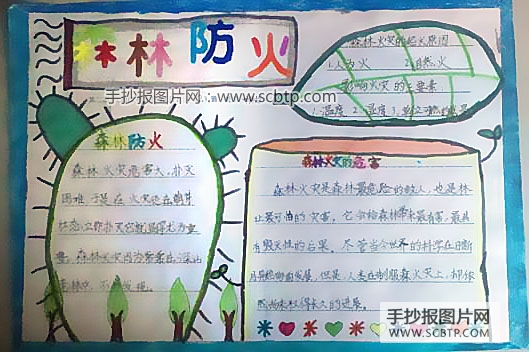 森林防火
森林火灾的起火原因
1.人为火 2.自然火
影响火灾的要素
1.温度 2.湿度 3.
手抄报图片网
www.scbtp.com
森林防火
森林火灾危害大,扑灭
困难于是在火灾还在萌芽
状态立即扑灭它就显得尤为重
要,森林火灾因为常常在深山
老林中,不
森林火灾的危害
森林火灾是森林最危险的敌人,也是林
业最可怕的灾害,它会给森林带来最有害,最具
有毁灭性的后果。尽管当今世界的科学在日新
月异地向前发展,但是,人类在制服森火灾上,却依
然尚未取得长久的进展。
手抄报图片网
WWW.SCBTP.COM